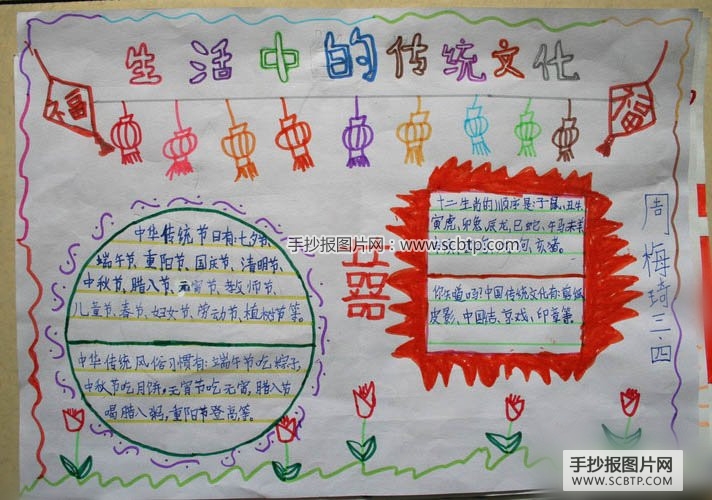 生活中的传统文化
福
福
中华传统节日有:七夕节、
端午节、重阳节、国庆节、清明节、
中秋节、腊八节、元宵节、教师节、
儿童节、春节、妇女节、劳动节、植树节等。
中华传统风俗习惯有:端午节吃粽子,
中秋节吃月饼,元宵节吃元宵,腊八节
喝腊八粥,重阳节登高等。
十二生肖的顺序是:子鼠、丑牛、
寅虎、卯兔、辰龙、巳蛇、午马未羊
狗、亥猪。
你知道吗?中国传统文化有:剪纸
皮影、中国结、京戏、印章等。
周梅琦三.四
手抄报图片网:www.scbtp.com
手抄报图片网
WWW.SCBTP.COM